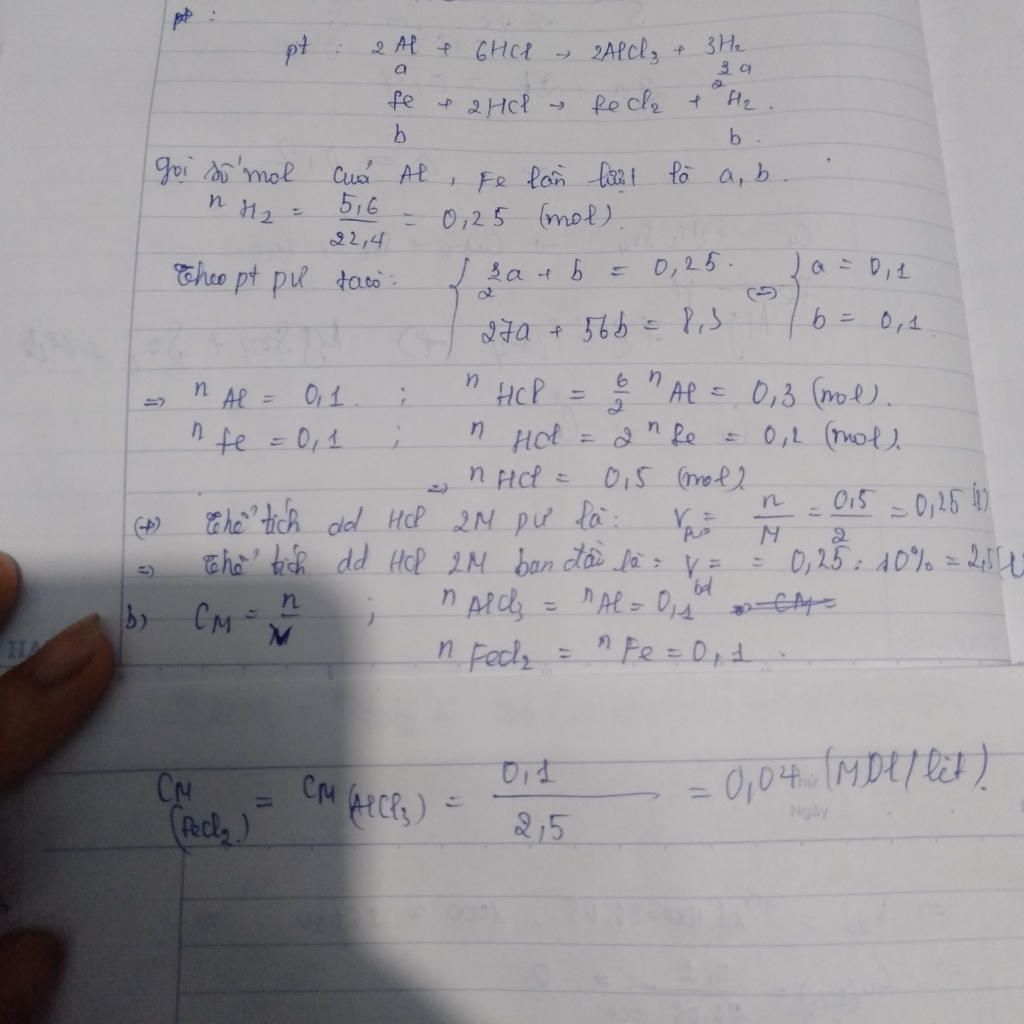 pt :
pt : 2Al + 6HCl → 2AlCl3 + 3H2
a 3/2 a
Fe + 2HCl → FeCl2 + H2.
b b.
Gọi số mol của Al, Fe lần lượt là a, b.
nH2 = 5,6/22,4 = 0,25 (mol).
Theo pt pư ta có: { 3/2a + b = 0,25. (=) { a = 0,1
27a + 56b = 8,3 b = 0,1.
=> nAl = 0,1. ; nHCl = 6/2 nAl = 0,3 (mol).
nFe = 0,1 ; nHCl = 2nFe = 0,2 (mol).
=> nHCl = 0,5 (mol)
(+) Thể tích dd HCl 2M pư là: Vpư = n/M = 0,5/2 = 0,25 (l)
=> Thể tích dd HCl 2M ban đầu là: Vbd = = 0,25 : 10% = 2,5 (l)
b) CM = n/V ; nAlCl3 = nAl = 0,1 => CM=
nFeCl2 = nFe = 0,1.
CM (FeCl2) = CM (AlCl3) = 0,1/2,5 = 0,04 (MOl/lit).
Thứ
Ngày